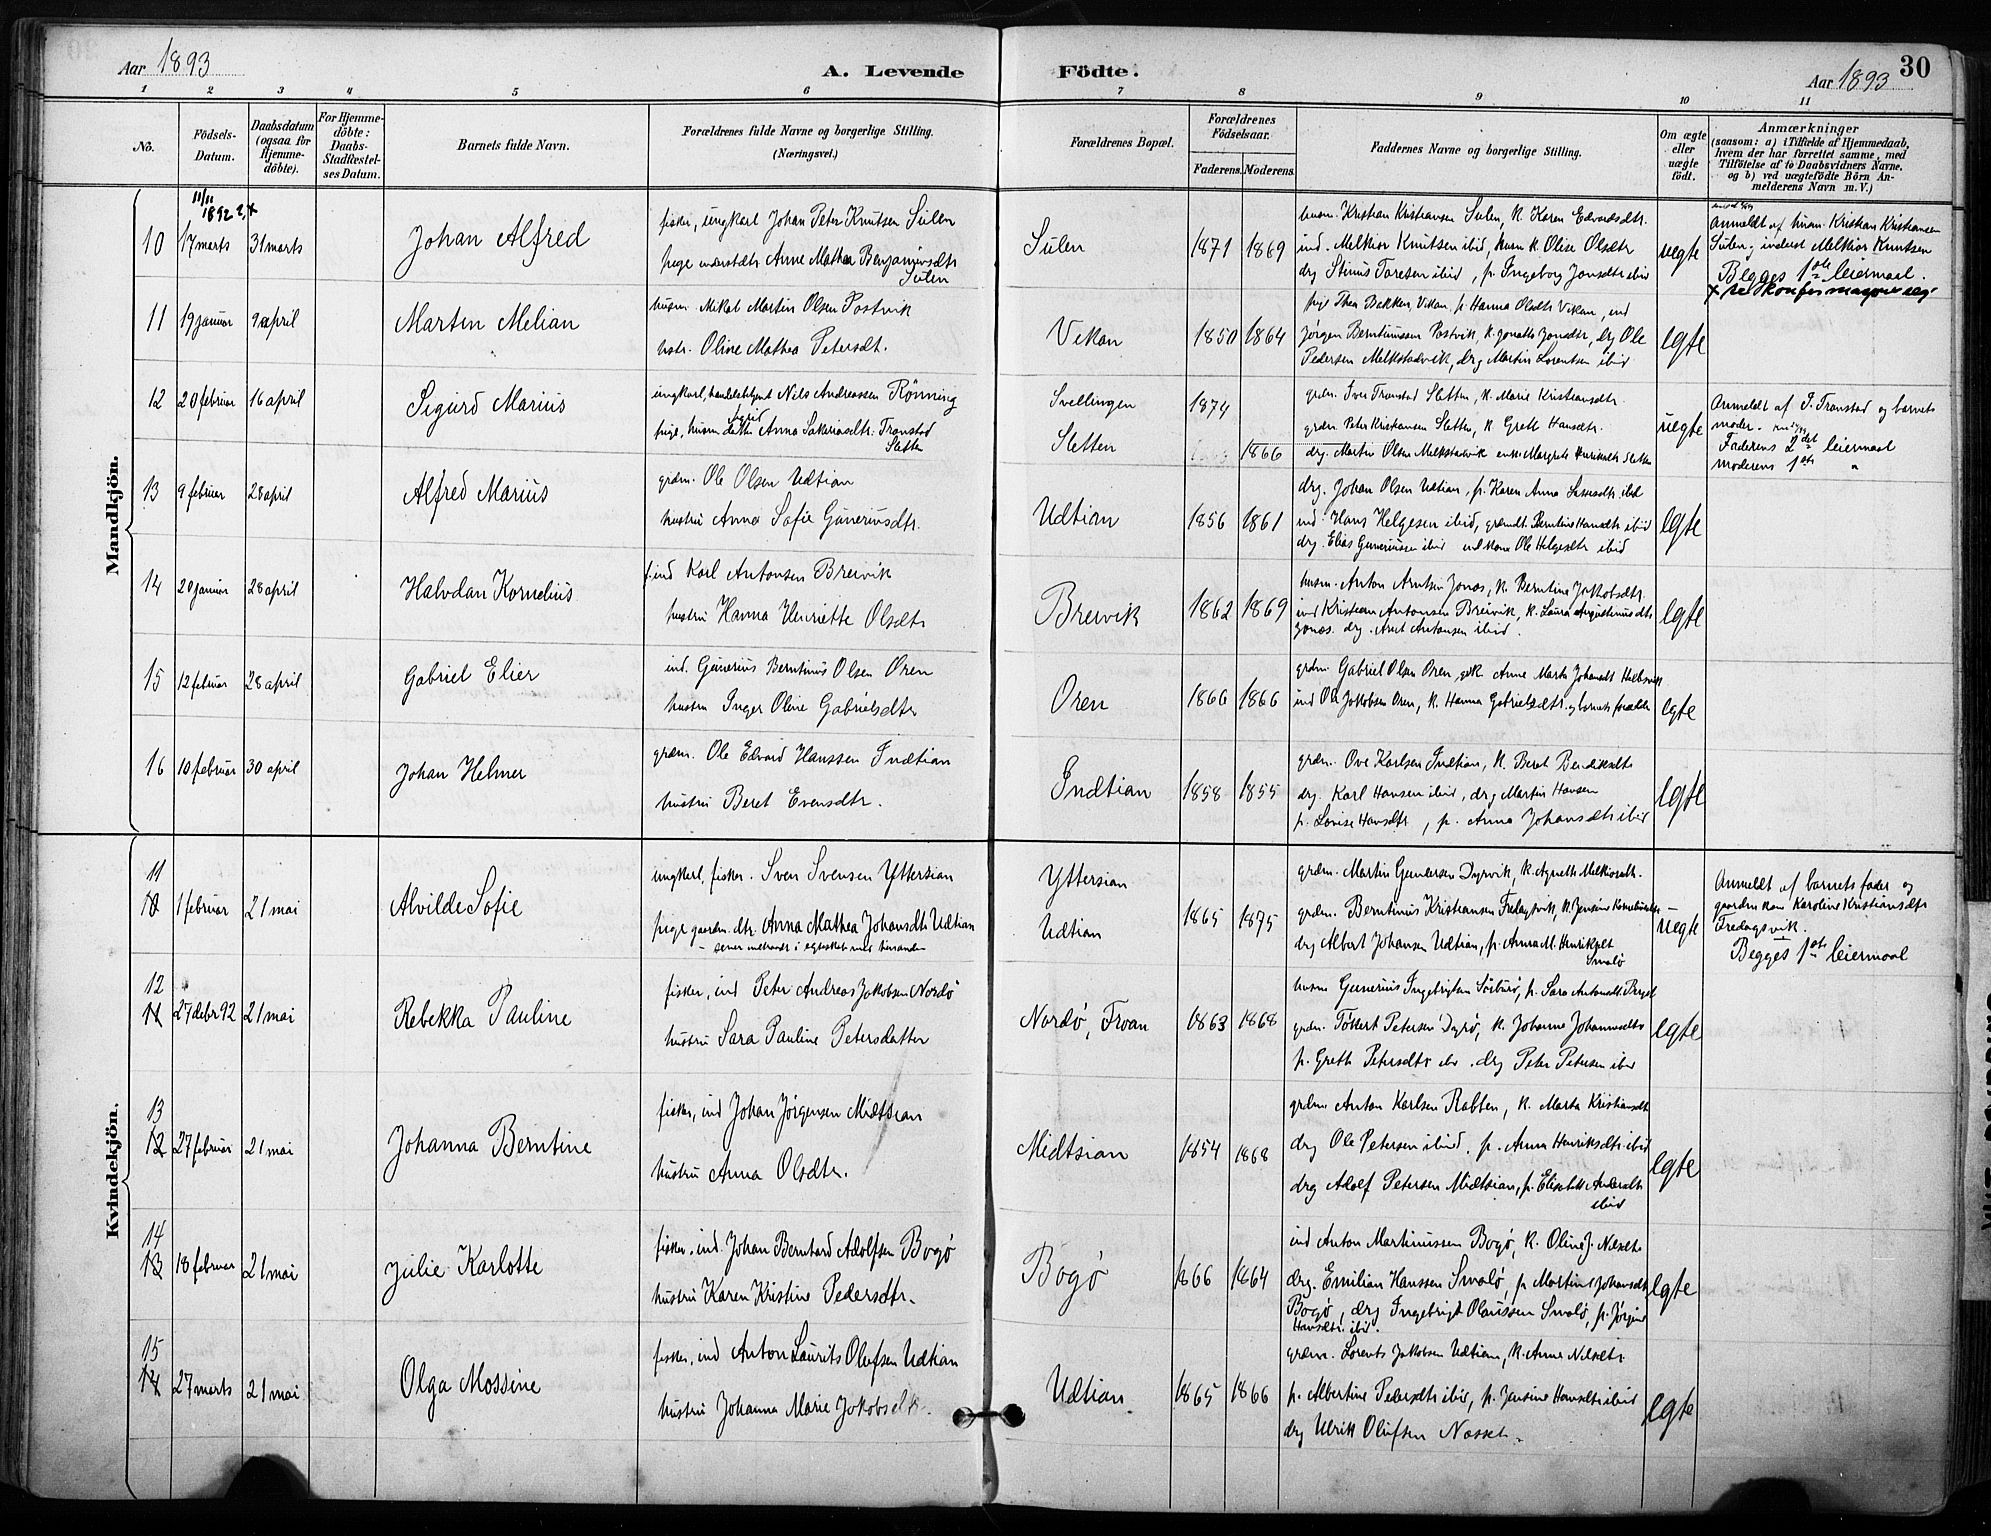 Aar 1893
A. Levende Födte.
Aar 1893 30
1 2 3 4 5 6 7 8 9 10 11
No.
Födsels-Datum.
Daabsdatum (ogsaa for Hjemme-döbte).
For Hjemme-döbte: Daabs-Stadfæstel-ses Datum.
Barnets fulde Navn.
Forældrenes fulde Navne og borgerlige Stilling. (Næringsvei.)
Forældrenes Bopæl.
Forældrenes Födselsaar.
Faderens. Moderens.
Faddernes Navne og borgerlige Stilling.
Om ægte eller uægte födt.
Anmærkninger (saasom: a) i Tilfælde af Hjemmedaab, hvem der har forrettet samme, med Tilföielse af to Daabsvidners Navne. og b) ved uægtefödte Börn An-melderens Navn m. V.)
Mandkjön.
11/11 1892 ? x
10 17 marts 31 marts Johan Alfred
fisker, ungkarl Johan Peter Knutsen Sulen
pige Anne Mathea Benjaminsdtr Sulen
Sulen 1871 1869
husm. Kristian Kristiansen Sulen, k. Karen Edvardsdtr.
ind. Melkior Knutsen ibid, k. Oline Olsdtr
drg Stinus Toresen ibid, p. Ingeborg Jonsdtr ibid
uegte
Anmeldt af husm. Kristian Kristiansen
Sulen og inderst Melkior Knutsen
Begges 1ste leiermaal.
11 19 januar 9 april Martin Melian
husm. Mikal Martin Olsen Postvik
hstr. Oline Mathea Petersdt.
Vikan 1850 1864
pige Thea Bekken Vikan, p. Hanna Olsdtr Vikan, ind
Jørgen Berntinussen Postvik, k. Jonetta Jonsdtr, drg Ole
Pedersen Melkstadvik, drg Martin Lorentsen ibid
egte
12 20 februar 16 april Sigurd Marius
ungkarl, handelsbetjent Nils Andreassen Rönning
pige, husm datter Sigrid Anna Sakariasdtr. Transtad Sletten
Svellingen 1874
Sletten 1866
grdm. Iver Transtad Sletten, k. Marie Kristiansdtr.
grdm. Peter Kristiansen Sletten, k. Grete Hansdtr.
drg. Martin Olsen Melkstadvik enke Margrete Henriksdtr Sletten
uegte
Anmeldt af I. Transtad og barnets
moder.
Faderens 2det leiermaal
moderens 1ste "
13 9 februar 28 april Alfred Marius
grdm. Ole Olsen Udtian
hustru Anna Sofie Guneriusdtr.
Udtian 1856 1861
drg. Johan Olsen Udtian, p. Karen Anna Larsdtr ibid
ind. Hans Helgesen ibid, Berntine Hansdtr ibid
drg. Elias Gunerussen ibid Ole Helgesdtr ibid
egte
14 20 januar 28 april Halvdan Kornelius
f. ind Karl Antonsen Breivik
hustru Hanna Henriette Olsdtr
Breivik 1862 1869
husm. Anton Arntsen Jonas, k. Berntine Jakobsdtr.
ind Kristian Antonsen Breivik, k. Laura Augustinusdtr
Jonas. drg. Arnt Antonsen ibid.
egte
15 12 februar 28 april Gabriel Elier
ind. Gunerius Berntinus Olsen Oren
hustru Inger Oline Gabrielsdtr
Oren 1866 1866
grdm. Gabriel Olsen Oren, gdk. Anne Marta Johansdt
ind Ole Jakobsen Oren, k. Hanna Gabrielsdtr. og barnets forældre
egte
16 10 februar 30 april Johan Helmer
grdm. Ole Edvard Hanssen Indtian
hustru Beret Evensdtr.
Indtian 1858 1855
grdm. Ove Karlsen Indtian, k. Beret Bendiksdtr
drg. Karl Hansen ibid, drg Martin Hansen
p. Lovise Hansdtr, p. Anna Johansdtr ibid
egte
Kvindekjön.
11 10 1 februar 21 mai Alvilde Sofie
ungkarl, fisker. Sven Svensen Yttersian
pige gaardm. dtr. Anna Mathea Johansdtr Udtian
- senere indtraadt i egteskab med hinanden
Yttersian
Udtian 1865 1875
grdm. Martin Gundersen Dyrvik, k. Agnete Melkiorsdtr.
grdm. Berntinus Kristiansen Fredagsvik, k. Jensine Korneliusdtr
drg Albert Johansen Udtian, p. Anna M. Henriksdt Smalø
uegte
Anmeldt af barnets fader og
gaardm kone Karoline Kristiansdtr
Fredagsvik.
Begges 1ste leiermaal
12 11 27 debr 92 21 mai Rebekka Pauline
fisker, ind Peter Andreas Jakobsen Nordö
hustru Sara Pauline Petersdatter
Nordö, Froan 1863 1868
husm Gunerius Ingebrigtsen Sörburö, p. Sara Antonsdt
grdm. Tökert Petersen Dyrö, k. Johanna Johannesdtr
p. Grethe Petersdtr ibid. drg Peter Petersen ibid
egte
13 12 27 februar 21 mai Johanna Berntine
fisker, ind Johan Jörgensen Midtsian
hustru Anna Olsdtr.
Midtsian 1854 1868
grdm. Anton Karlsen Rabben, k. Marta Kristiansdt
drg Ole Petersen ibid. p. Anna Henriksdtr ibid
drg Adolf Petersen Midtsian, p. Elisabeth Andersdtr ibid
egte
14 13 18 februar 21 mai Julie Karlotte
fisker, ind. Johan Bernhard Adolfsen Bogø
hustru Karen Kristine Pedersdtr.
Bogø 1866 1864
ind Anton Martinussen Bogø, k. Oline J. Nilsdtr
drg. Emilian Hanssen Smalø, p Martine Johansdt
Bogø, drg Ingebrigt Olaussen Smalø, p. Jørgine
Hansdtr ibid.
egte
15 14 27 marts 21 mai Olga Mossine
fisker, ind Anton Laurits Olufsen Udtian
hustru Johanna Marie Jakobsdtr.
Udtian 1865 1866
grdm. Lorents Jakobsen Udtian, k. Anne Nilsdtr
p. Albertine Pedersdtr ibid, p. Jensine Hansdtr ibid
drg Ulrik Olufsen Nesset.
egte